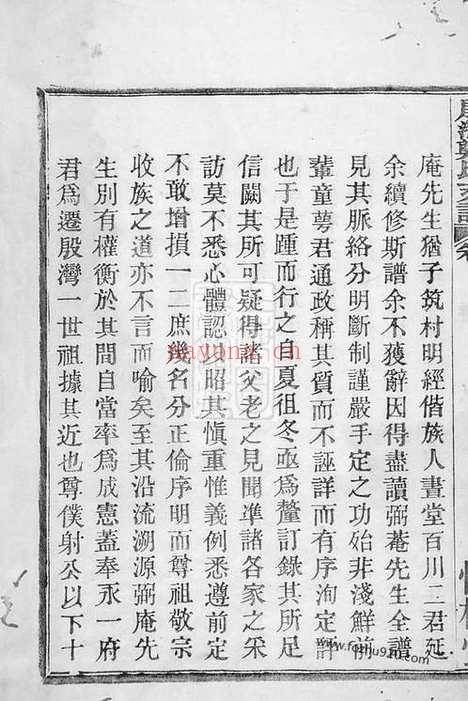 庵先生猶子筑村明經偕族人晝堂百川二君延
余續修斯譜余不獲辭因得盡讀弼菴先生全譜
見其脈絡分明斷制謹嚴手定之功殆非淺鮮前
輩童萼君通政稱其質而不誣詳而有序洵定評
也于是踵而行之自夏徂冬亟爲釐訂錄其所足
信闕其所可疑得諸父老之見聞凖諸各家之采
訪莫不悉心體認以昭其愼重惟義例悉遵前定
不敢增損一二庶幾名分正倫序明而尊祖敬宗
收族之道亦不言而喻矣至其沿流溯源弼庵先
生別有權衡於其間自當率爲成憲蓋奉永一府
君爲遷殷灣一世祖據其近也尊僕射公以下十
nayona.cn
www.fozhu920.com